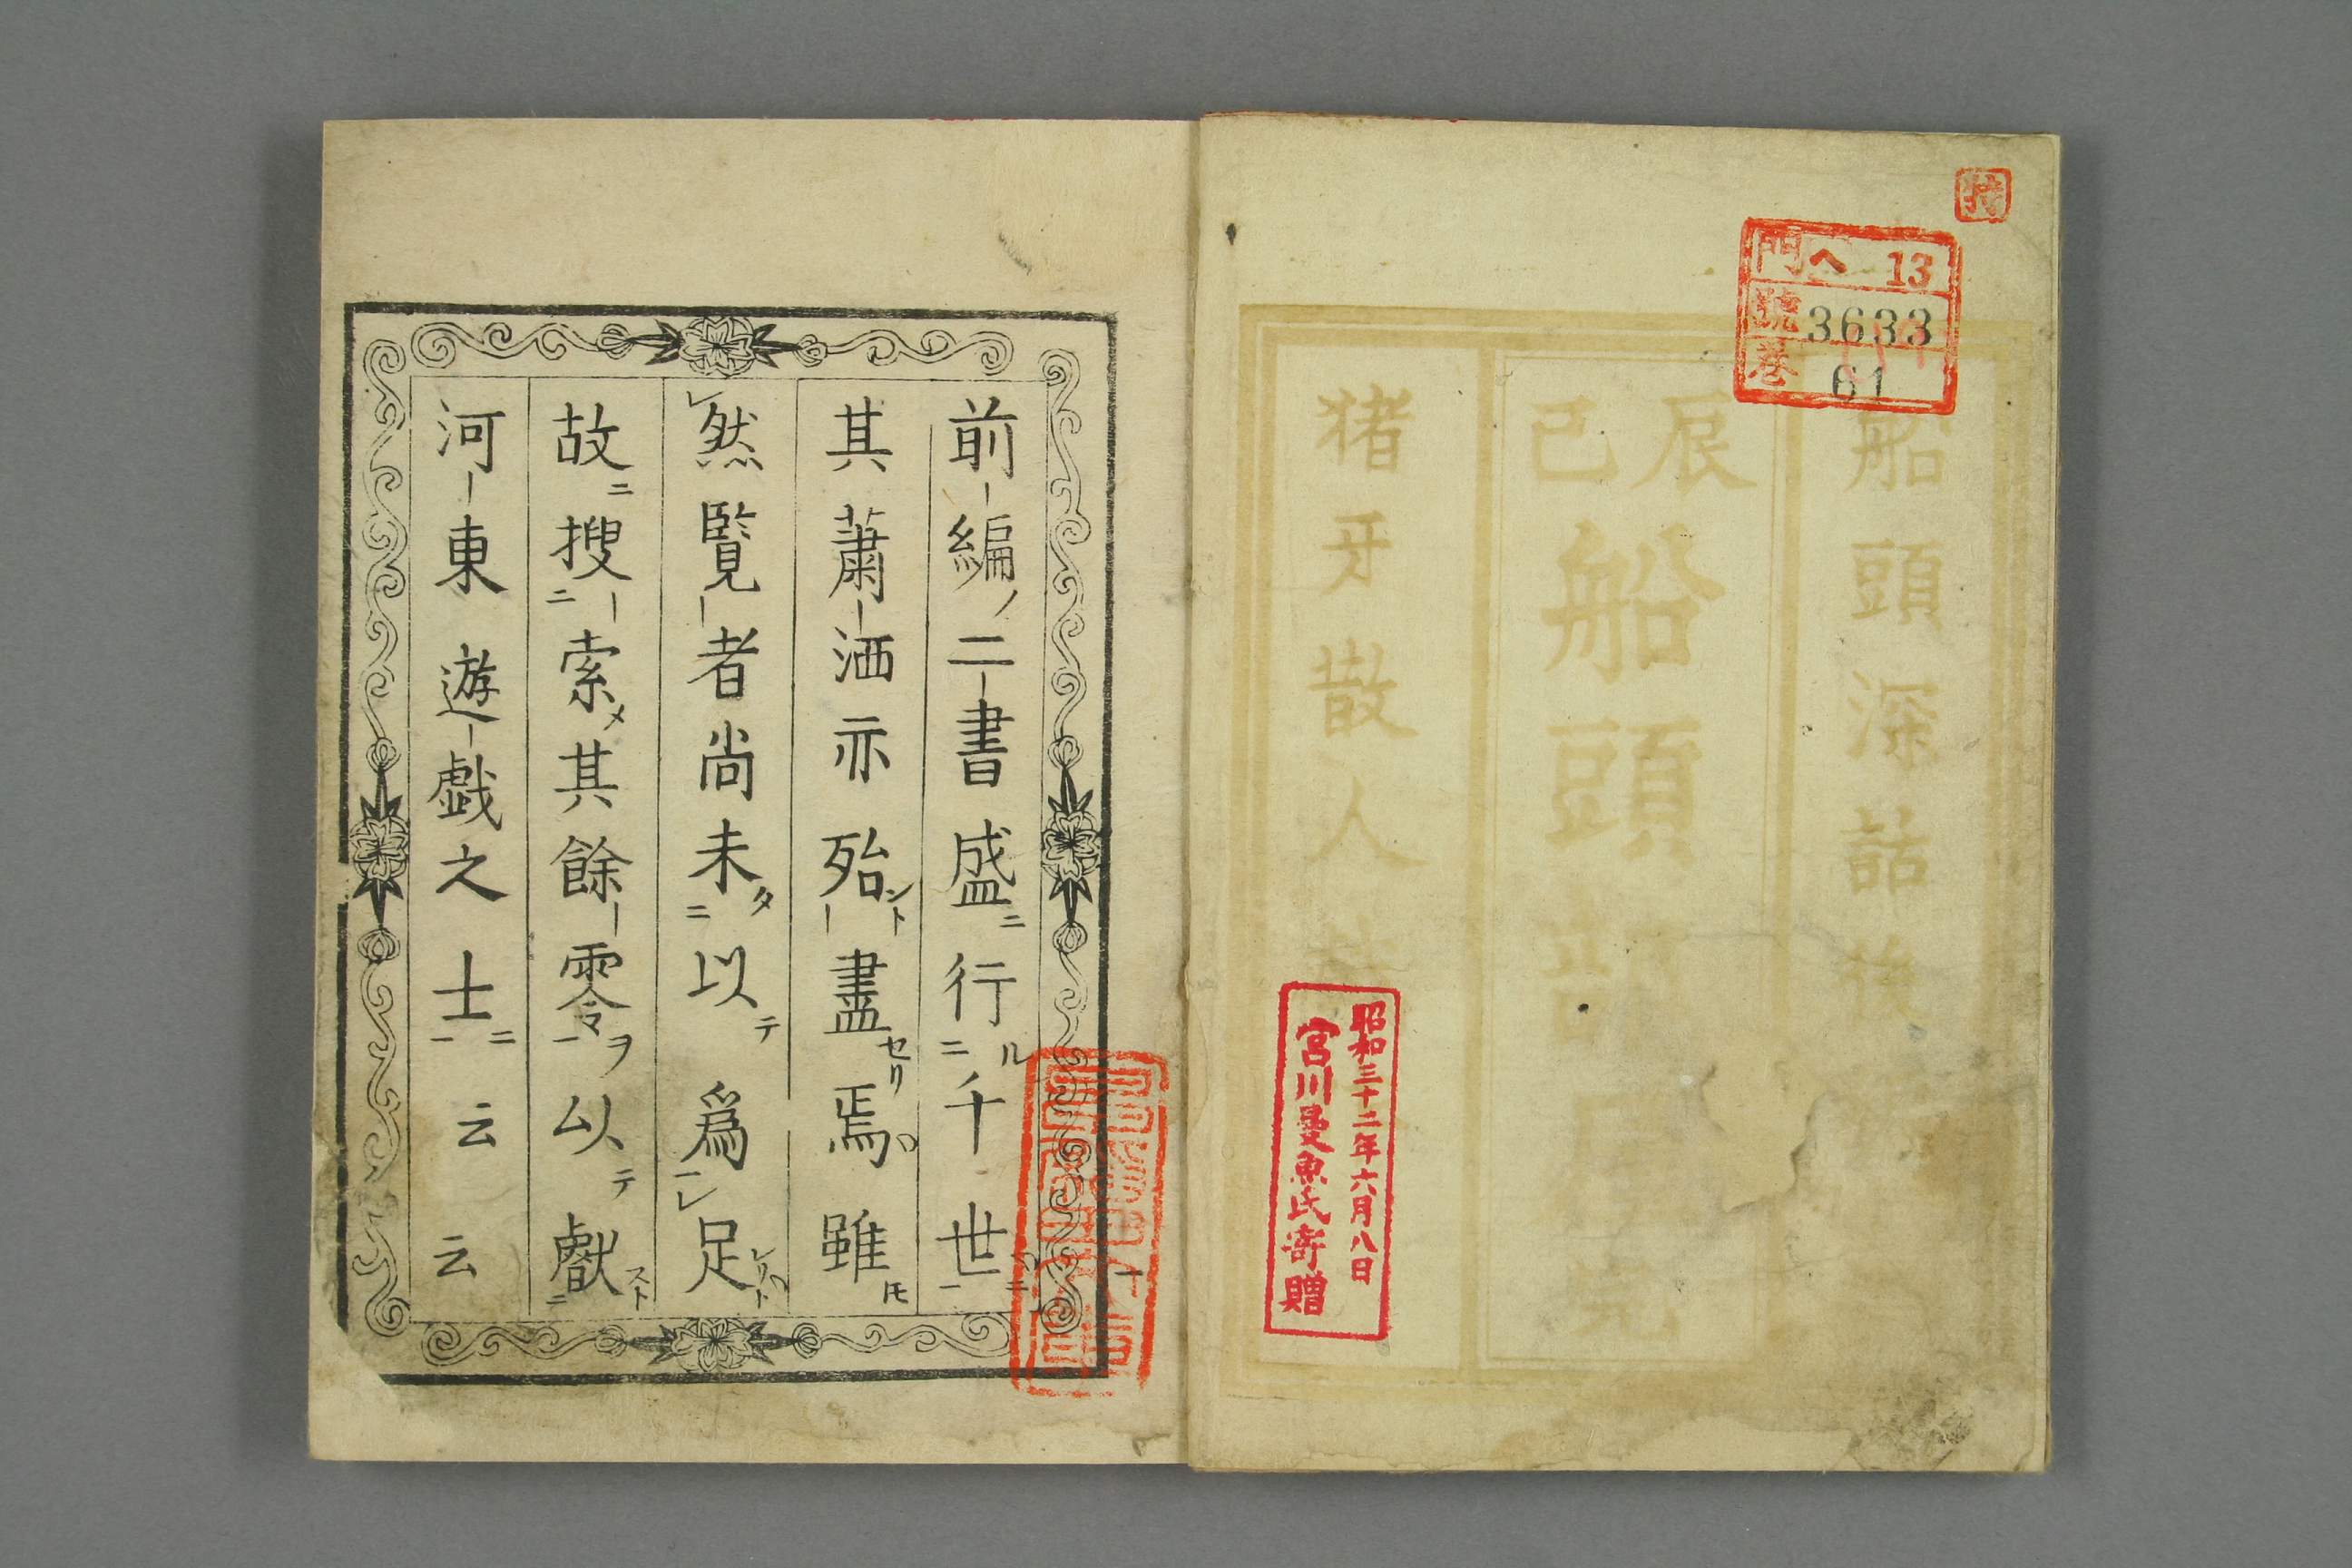 特
門 ヘ 13
號 3633
巻 61
船頭深話後
辰巳
船頭部
完
猪牙散人
昭和三十二年六月八日
宮川曼魚氏寄贈
前編ノ二書盛ニ行ル千世ニ
其蕭洒亦殆ント盡セリ焉雖モ
然覧者尚未タ以テ爲足レリト
故ニ搜索メ其餘零ヲ以テ献スト
河東遊戯之士ニ云云
一